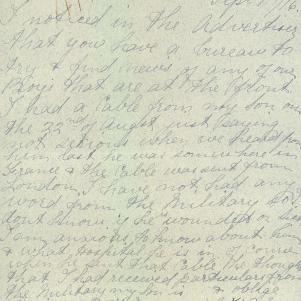 I noticed in the Advertiser
that you have a bureau to
try & find news of any of our
Boys that are at the front
I had a Cable from my son on
the 22nd of August just saying
not serious when we heard from
him last he was somewhere in
France & the Cable was sent from
London. I have not had any
word from the Military so
dont know if he wounded or sick
I am anxious to know about him
& what Hospital he is in if
that Cable
that I had received particulars from
the Military my son is & oblige